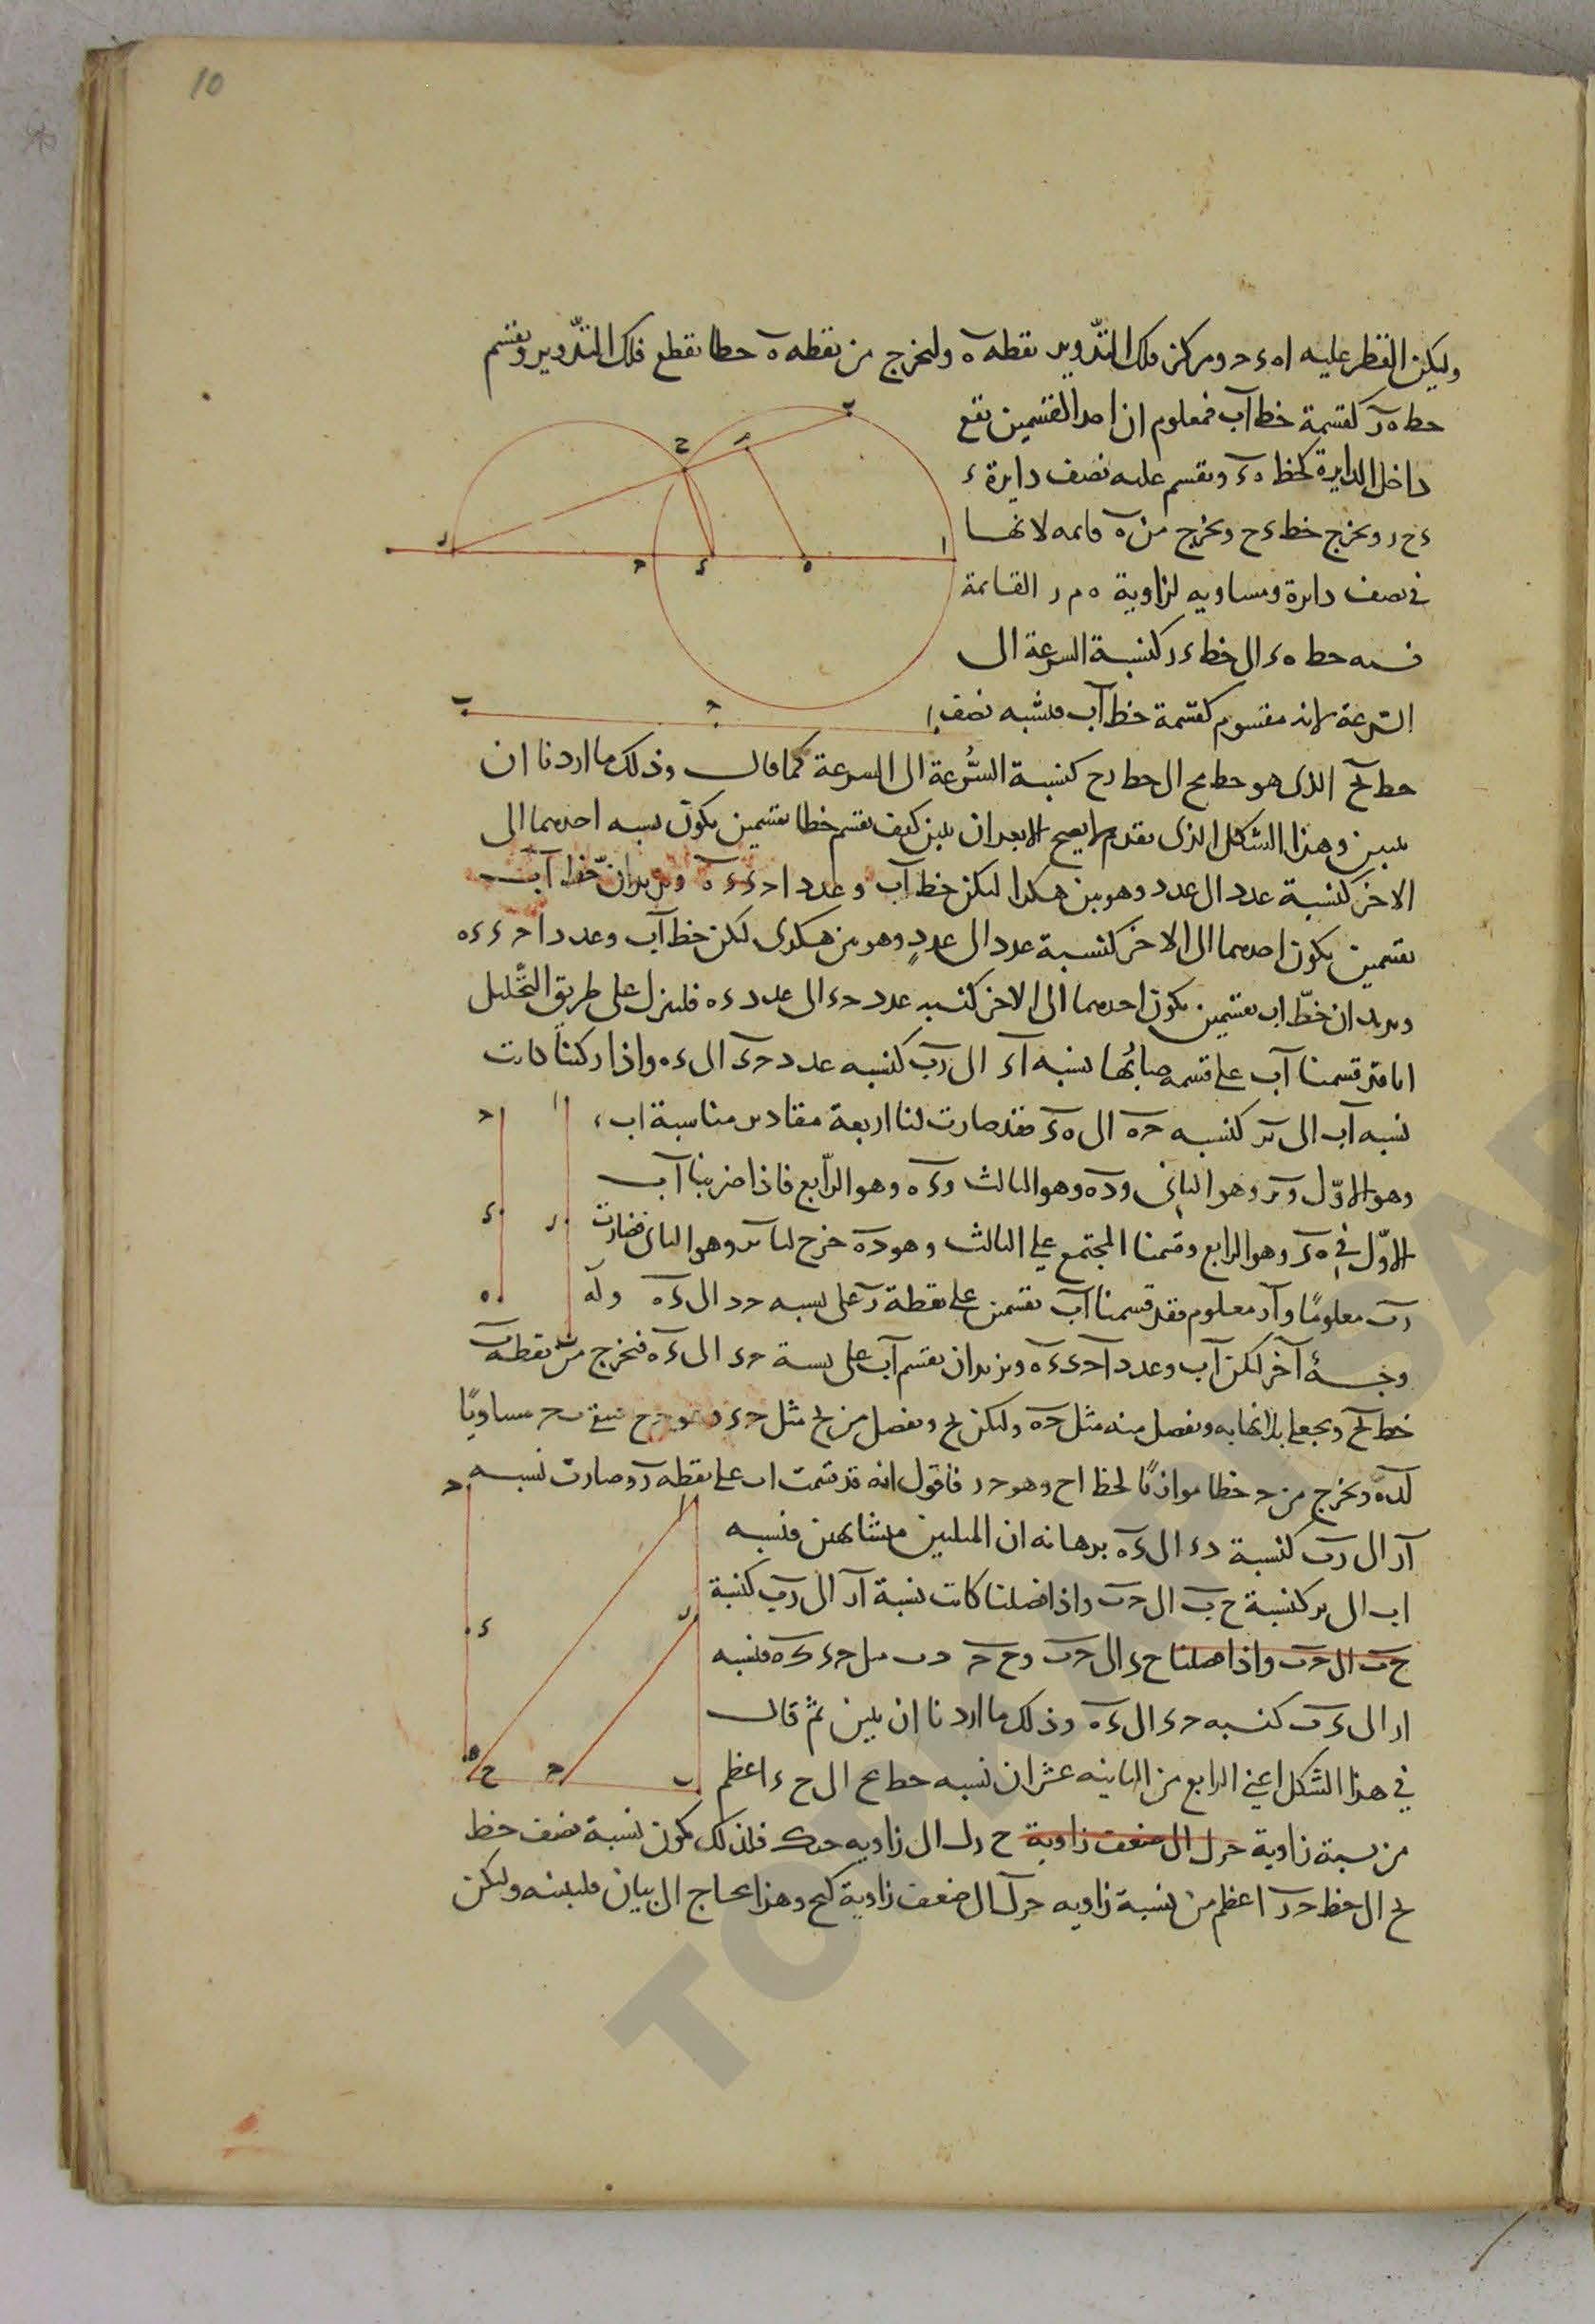 10
وليكن القطر عليه اه ء ح ومركز فلك التدوير نقطة ه ولنخرج من نقطة ه خطا يقطع فلك التدوير ونقسم
خط ه ر كقسمة خط اب فمعلوم ان احد القسمين يقع
داخل الدايرة كخط ه ء ونقسم عليه نصف دايرة ء
ء ح ر ونخرج خط ء ح ونخرج من ه قايمه لانها
في نصف دايرة ومساويه لزاوية ه م ر القايمة
فنسبه خط ه ء الى خط ء ر كنسبة السرعة الى
السرعة لانه مقسوم كقسمة خط اب فنسبه نصف
خط ٮح الذى هو خط مح الى خط رح كنسبة السرعة الى السرعة كما قال وذلك ما اردنا ان
نبين وهذا الشكل الذى تقدم لا يصح الا بعد ان نبين كيف نقسم خطا بقسمين يكون نسبه احدهما الى
الاخر كنسبة عدد الى عدد وهو بين هكذا ليكن خط اب وعدد ا ح ء ء ه ونريد ان خط اب
بقسمين يكون احدهما الى الاخر كنسبة عدد الى عدد وهو بين هكذى ليكن خط اب وعدد ا ح ء ء ه
ونريد ان خط اب بقسمين يكون احدهما الى الاخر كنسبه عدد حء الى عدد ءه فلننزل على طريق التحليل
انا قد قسمنا اب على قسمه نسبه ا ء الى رب كنسبه عدد حء الى ءه واذا ركبنا كانت
نسبه اب الى ٮر كنسبه حه الى هء فقد صارت لنا اربعة مقادير متناسبة اب ،
وهو الاول وٮر وهو الثانى وده وهو الثالث وءه وهو الرابع فاذا ضربنا اب
الاول في هء وهو الرابع وقسمنا المجتمع على الثالث وهو ده خرج لنا ٮر وهو الثانى فصارت
رب معلوما وار معلوم فقد قسمنا اب بقسمين على نقطة ر على نسبه حد الى ءه وله
وجه آخر ليكن اب وعدد ا حء ءه ونريد ان نقسم اب على نسبة حء الى ءه فنخرج من نقطة ب
خط ٮح ونجعله بلا نهايه ونفصل منه مثل حه وليكن ٮح ونفصل من ٮح مثل حء وهو حح فيبقى ٮح مساويا
لده ونخرج من ح خطا موازيا لخط اح وهو حر فاقول انه قد قسمت اب على نقطه ر وصارت نسبه
ار الى رب كنسبة دء الى ءه برهانه ان المثلثين متشابهين فنسبه
اب الى ٮر كنسبة حب الى حب واذا فصلنا كانت نسبة ار الى رب كنسبة
حب الى حب واذا فصلنا حء الى حب وحح دب مثل حء ءه فنسبه
ار الى ءب كنسبه حء الى ءه وذلك ما اردنا ان نبين ثم قال
في هذا الشكل اعنى الرابع من الثانيه عشر ان نسبه خط عح الى حء اعظم
من نسبة زاوية حرل الى ضعف زاوية ح رل الى زاويه حٮك فلذلك يكون نسبة نصف خط
ٮح الى خط حر اعظم من نسبة زاويه حرل الى ضعف زاوية كٮح وهذا يحتاج الى بيان فلنبينه وليكن